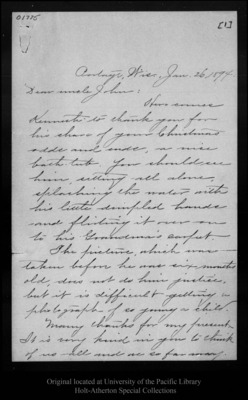 01775
[1]
Portage, Wis., Jan. 26, 1894
Dear uncle John:
Here comes
Kenneth to thank you for
his share of your Christmas
odds and ends, a nice
bath-tub. You should see
him, sitting all alone,
splashing the water with
his little dimpled hands
and flirting it over on
to his Grandma's carpet.
The picture, which was
taken before he was six months
old, does not do him justice,
but it is difficult getting a
photograph of so young a child.
Many thanks for my present.
It is very kind in you to think
of us all and as so far away
Original located at University of the Pacific Library
Holt-Atherton Special Collections